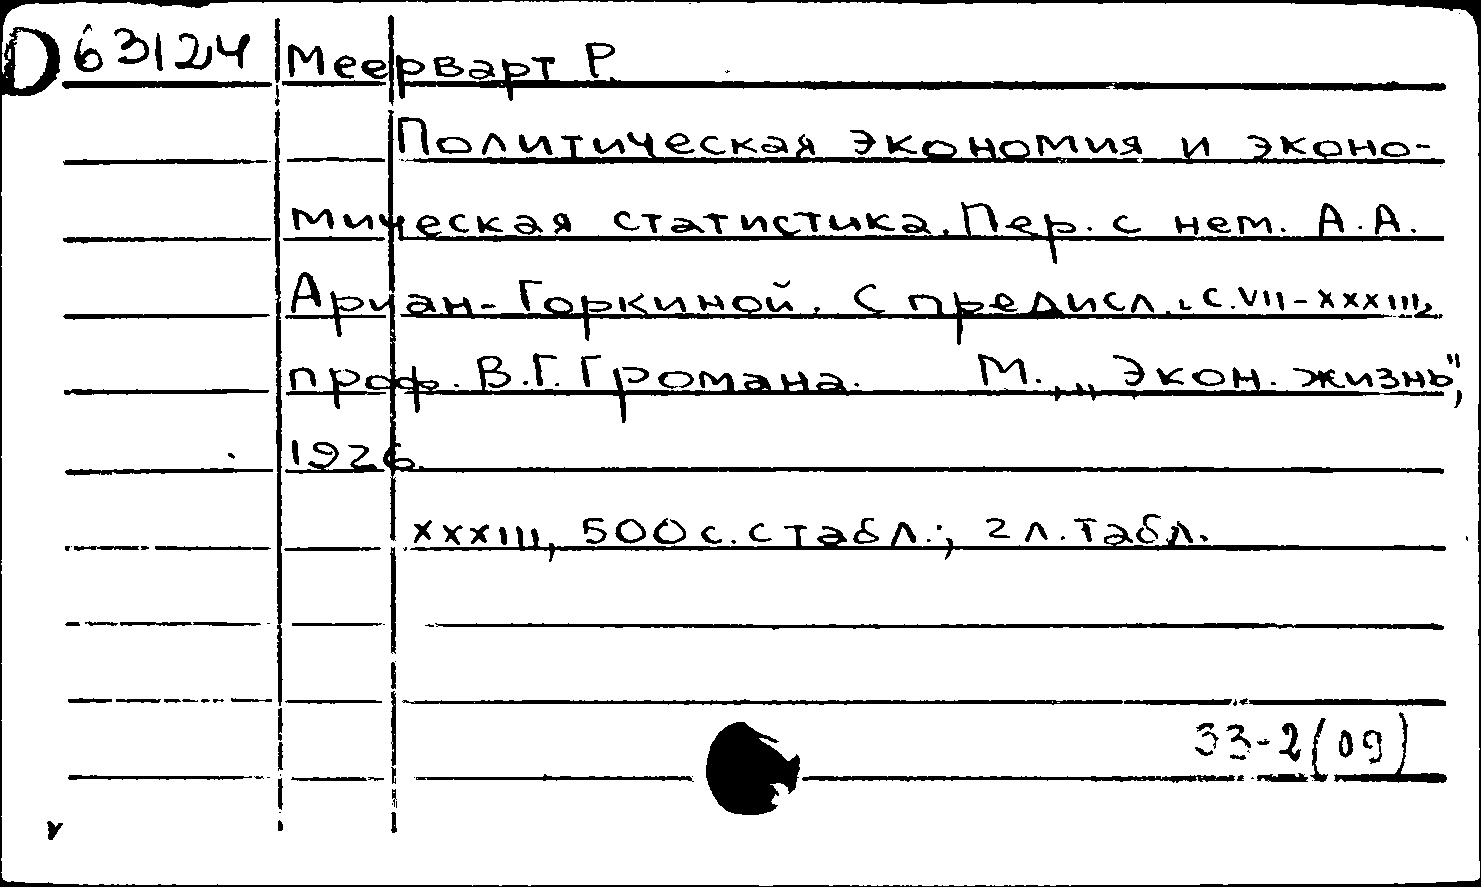 D 63124 Меерварт Р.
Политическая экономия и эконо-
мическая статистика. Пер. с нем. А.А.
Ариан-Горкиной. С предисл., с. VII-XXXIII,
проф. В.Г. Громана. М., „Экон. жизнь",
1926.
XXXIII, 500 с. с табл.; 2 л. табл.
33-2(09)